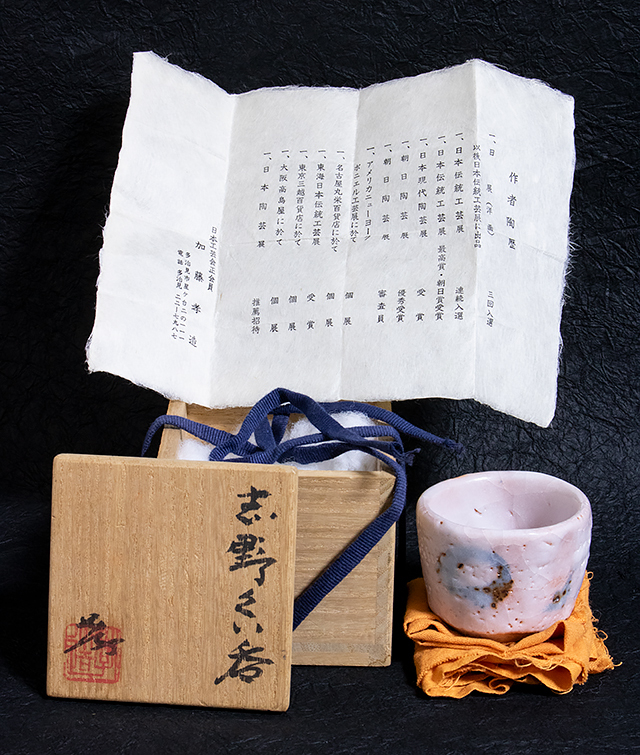 作者陶歴
一、日展(洋画) 三回入選
以後日本伝統工芸展に出品
一、日本伝統工芸展 連続入選
一、日本伝統工芸展 最高賞・朝日賞受賞
一、日本現代陶芸展 受賞
一、朝日陶芸展 優秀受賞
一、朝日陶芸展 審査員
一、アメリカニューヨーク
ボニエル工芸展に於て
一、名古屋丸栄百貨店に於て 個展
一、東海日本伝統工芸展 受賞
一、東京三越百貨店に於て 個展
一、大阪高島屋に於て 個展
一、日本陶芸展 推薦招待
日本工芸会正会員
加藤孝造
多治見市星ケ台二の一一一
電話 多治見 二二-七九八七
志野ぐい呑
孝